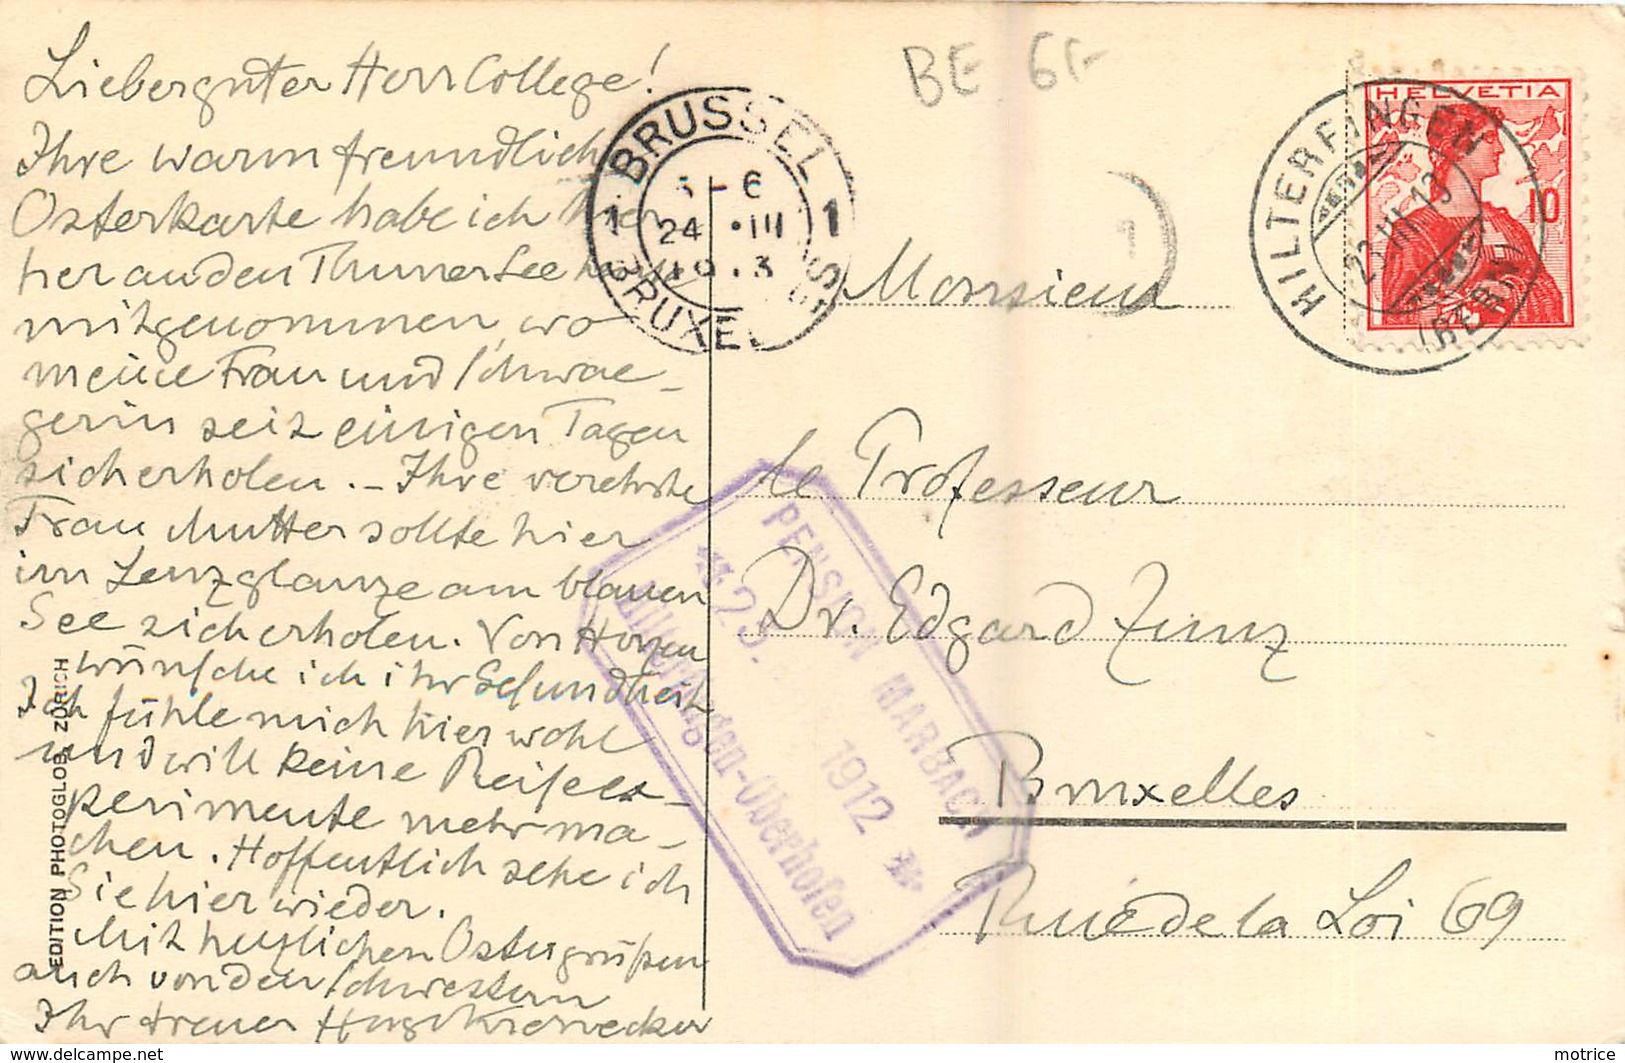 Lieber guter Herr College!
Ihre warm freundliche
Osterkarte habe ich hier
her an den Thuner See
mitgenommen, wo
meine Frau und Schwae-
gerin seit einigen Tagen
sich erholen. - Ihre verehrte
Frau Mutter sollte hier
im Lenzglanze am blauen
See sich erholen. Von Herzen
wünsche ich ihr Gesundheit
Ich fühle mich hier wohl
und will keine Reiseex-
perimente mehr ma-
chen. Hoffentlich sehe ich
Sie hier wieder.
Mit herzlichen Ostergrüßen
auch von den Schwestern
Ihr treuer Hugo
EDITION PHOTOGLOB, ZÜRICH
BE 6.-
1 BRUSSEL 1
5-6
24 .III
19.3
BRUXELLES
1
HELVETIA
10
HILTERFINGEN
23.III.13
(BERN)
Monsieur
le Professeur
Dr. Edgard Zunz
Bruxelles
Rue de la Loi 69
PENSION MARBACH
* 23. 1912 *
Hilterfingen-Oberhofen
www.delcampe.net
motrice